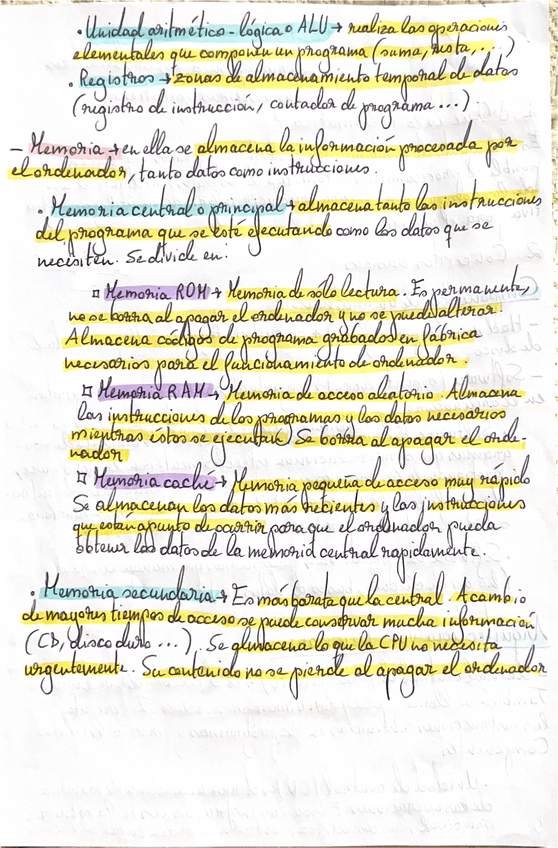 · Unidad aritmético-lógica o ALU → realiza las operaciones
elementales que componen un programa (suma, resta,...)
· Registros → zonas de almacenamiento temporal de datos
(registro de instrucción, contador de programa ...)
- Memoria → en ella se almacena la información procesada por
el ordenador, tanto datos como instrucciones.
· Memoria central o principal → almacena tanto las instrucciones
del programa que se esté ejecutando como los datos que se
necesiten. Se divide en:
▫ Memoria ROM → Memoria de sólo lectura. Es permanente,
no se borra al apagar el ordenador y no se puede alterar.
Almacena códigos de programa grabados en fábrica
necesarios para el funcionamiento de ordenador.
▫ Memoria RAM → Memoria de acceso aleatorio. Almacena
las instrucciones de los programas y los datos necesarios
mientras éstos se ejecutan. Se borra al apagar el orde-
nador
▫ Memoria caché → Memoria pequeña de acceso muy rápido
Se almacenan los datos más recientes y las instrucciones
que estan apunto de ocurrir para que el ordenador pueda
obtener los datos de la memoria central rapidamente.
· Memoria secundaria → Es más barata que la central. A cambio
de mayores tiempos de acceso se puede conservar mucha información
(CD, disco duro ...). Se almacena lo que la CPU no necesita
urgentemente. Su contenido no se pierde al apagar el ordenador